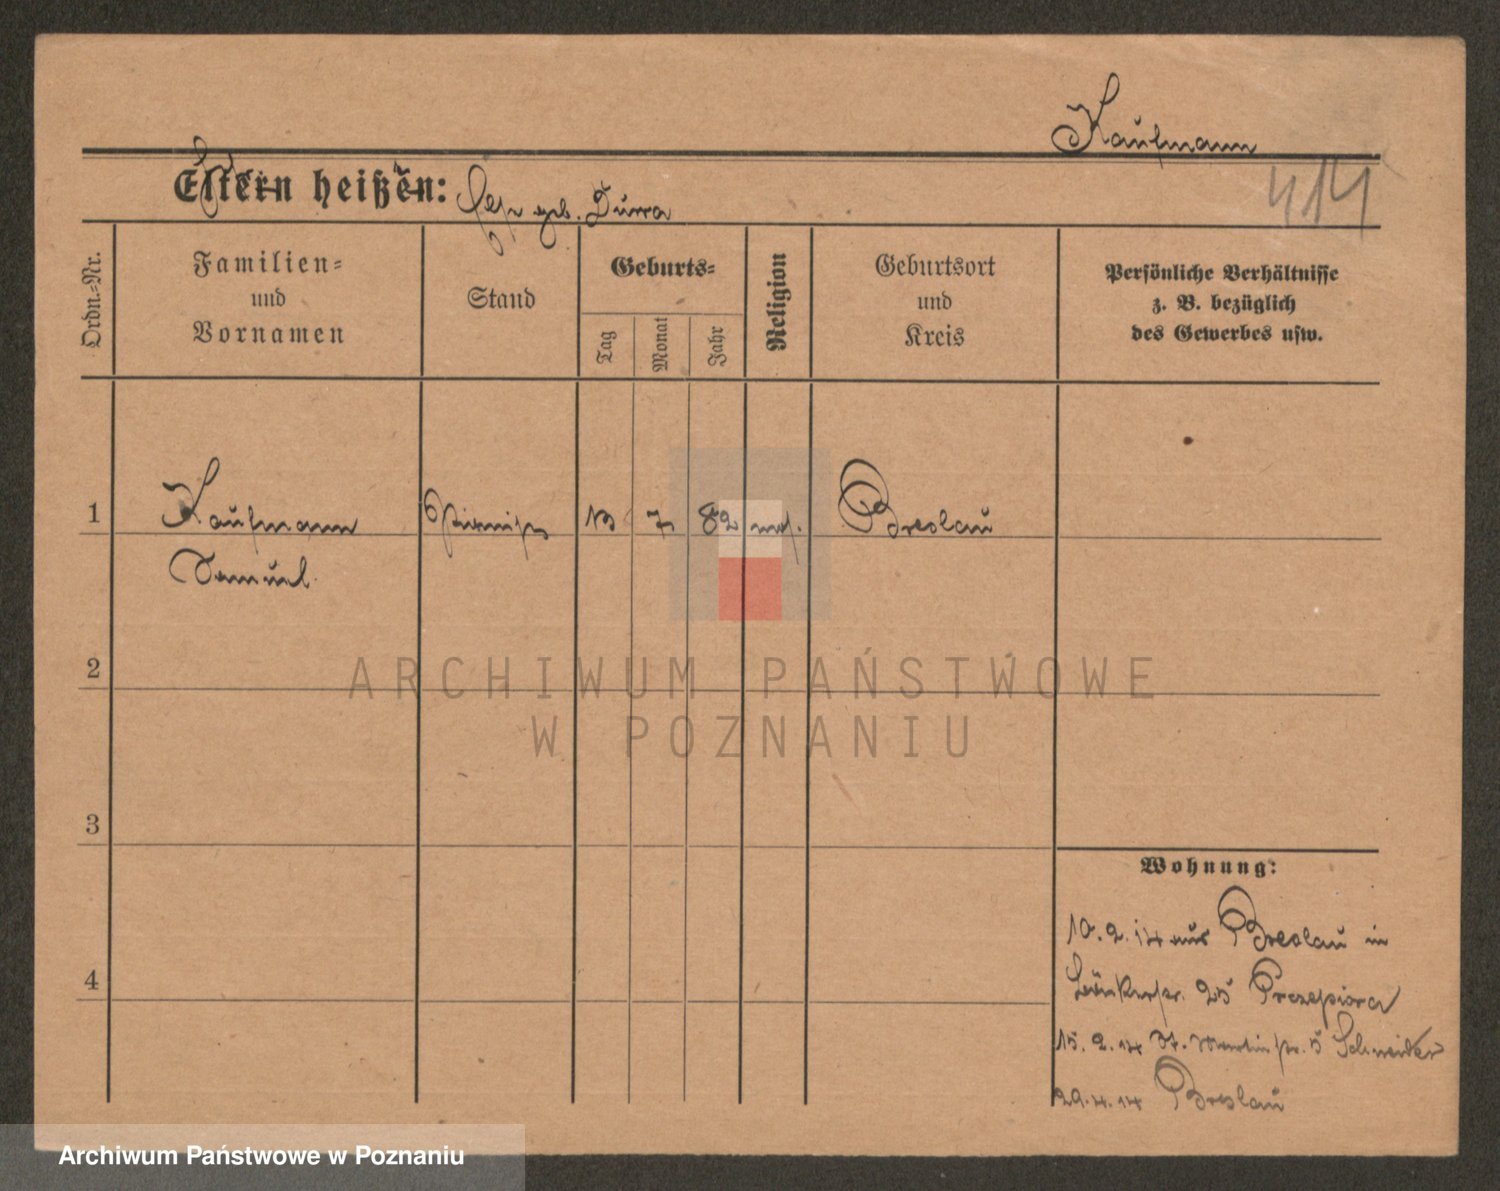 Kaufmann
Eltern heißen:
geb. Dura
414
Ordn.-Nr.
Familien-
und
Vornamen
Stand
Geburts-
Tag
Monat
Jahr
Religion
Geburtsort
und
Kreis
Persönliche Verhältnisse
z. B. bezüglich
des Gewerbes usw.
1 Kaufmann Pianist 13 7 82 mos. Breslau
Samuel
2
ARCHIWUM PAŃSTWOWE
W POZNANIU
3
Wohnung:
10.2.14 aus Breslau in
25 Przepiora
4
15.2.14 St. Martinstr. 5 Schneider
29.4.14 Breslau
Archiwum Państwowe w Poznaniu